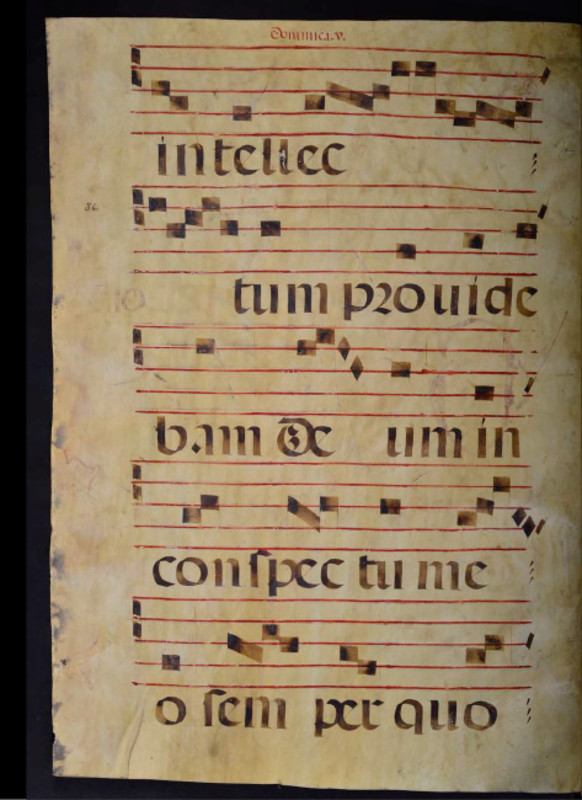 Dominica.v.
intellec
tum prouide
bam De um in
conspec tu me
o sem per quo